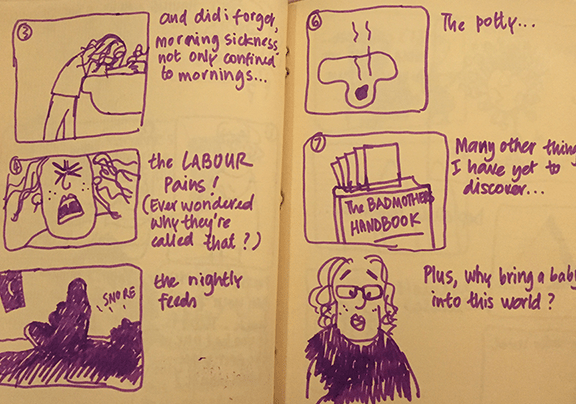 3
and did i forget,
morning sickness
not only confined
to mornings...
4
the LABOUR
Pains!
(Ever wondered
why they're
called that?)
SNORE
the nightly
feeds
6
The potty...
7
The BADMOTHERS
HANDBOOK
Many other thing
I have yet to
discover...
Plus, why bring a baby
into this world?